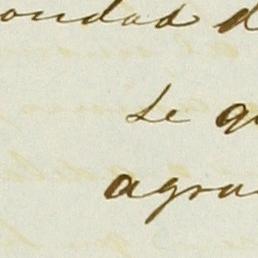 ondad d
Le qu
agra